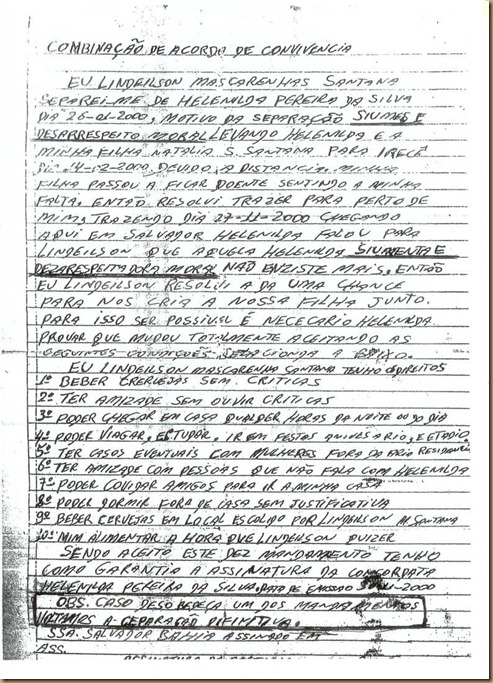 COMBINAÇÃO DE ACORDO DE CONVIVENCIA
EU LINDEILSON MASCARENHAS SANTANA
SEPAREI-ME DE HELENILDA PEREIRA DA SILVA
DIA 26-01-2000, MOTIVO DA SEPARAÇÃO SIUMES E
DESARRESPEITO MORAL LEVANDO HELENILDA E A
MINHA FILHA NATALIA S. SANTANA PARA IRECÊ
-02-2000, DEVIDO A DISTANCIA. MINHA
FILHA PASSOU A FICAR DOENTE SENTINDO A MINHA
FALTA. ENTÃO RESOLVI TRAZER PARA PERTO DE
MIM, TRAZENDO DIA 27-11-2000 CHEGANDO
AQUI EM SALVADOR HELENILDA FALOU PARA
LINDEILSON QUE AQUELA HELENILDA SIUMENTA E
DEZARESPEITADORA MORAL NÃO ENZISTE MAIS. ENTÃO
EU LINDEILSON RESOLVI A DA UMA CHANCE
PARA NOS CRIA A NOSSA FILHA JUNTO.
PARA ISSO SER POSSIVEL É NECECARIO HELENILDA
PROVAR QUE MUDOU TOTALMENTE ACEITANDO AS
SEGUINTES CONDIÇÕES A BAIXO.
EU LINDEILSON MASCARENHA SANTANA TENHO DIREITOS
1º BEBER CERVEJAS SEM CRITICAS
2º TER AMIZADE SEM OUVIR CRITICAS
3º PODER CHEGAR EM CASA QUALQUER HORAS DA NOITE OU DO DIA
4º PODER VIAGAR, ESTUDAR, IR EM FESTAS ANIVESARIO, E ESTADIO
5º TER CASOS EVENTUAIS COM MULHERES FORA DA RESIDENCIA
6º TER AMIZADE COM PESSOAS QUE NÃO FALA COM HELENILDA
7º PODER COVIDAR AMIGOS PARA IR A MINHA CASA
8º PODER DORMIR FORA DE CASA SEM JUSTIFICATIVA
9º BEBER CERVEJAS EM LOCAL ESCOLIDO POR LINDEILSON M. SANTANA
10º MIM ALIMENTAR A HORA QUE LINDEILSON QUIZER
SENDO ACEITO ESTE DEZ MANDAMENTO TENHO
COMO GARANTIA A ASSINATURA DA CONCORDATA
HELENILDA PEREIRA DA SILVA. DATO DE EMISSÃO -2000
OBS. CASO DESOBEDEÇA UM DOS MANDAMENTOS
VOLTAMOS A CEPARAÇÃO DIFINITIVA.
SSA. SALVADOR BAHIA ASSINADO EM
ASS.